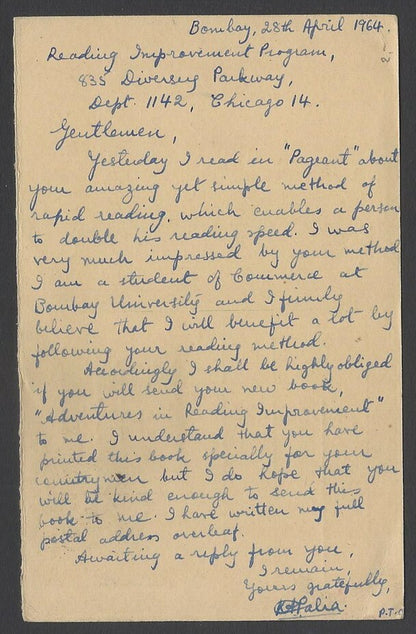 Bombay, 28th April 1964.
Reading Improvement Program,
835 Diversey Parkway,
Dept. 1142, Chicago 14.
Gentlemen,
Yesterday I read in "Pageant" about
your amazing yet simple method of
rapid reading, which enables a person
to double his reading speed. I was
very much impressed by your method
I am a student of Commerce at
Bombay University and I firmly
believe that I will benefit a lot by
following your reading method.
Accordingly I shall be highly obliged
if you will send your new book,
"Adventures in Reading Improvement"
to me. I understand that you have
printed this book specially for your
countrymen but I do hope that you
will be kind enough to send this
book to me. I have written my full
postal address overleaf.
Awaiting a reply from you,
I remain,
Yours gratefully,
P.T.O